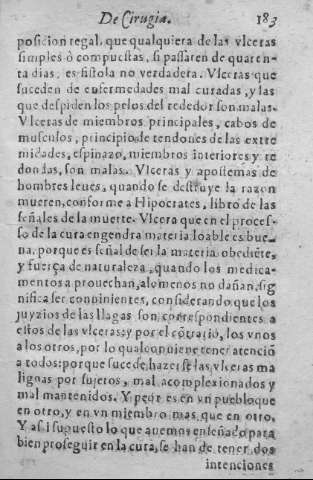 De Cirugia. 183
posicion regal, que qualquiera de las vlceras
simples ò compuestas, si passaren de quaren-
ta dias, es fistola no verdadera. Vlceras que
suceden de enfermedades mal curadas, y las
que despiden los pelos del rededor son malas.
Vlceras de miembros principales, cabos de
musculos, principio de tendones de las extre
midades, espinazo, miembros interiores y re
dondas, son malas. Vlceras y apostemas de
hombres leues, quando se destruye la razon
mueren, conforme a Hipocrates, libro de las
señales de la muerte. Vlcera que en el proces-
so de la cura engendra materia loable es bue-
na, porque es señal de ser la materia obediẽte,
y fuerça de naturaleza, quando los medica-
mentos aprouechan, alomenos no dañan, sig
nifica ser conuinientes, considerando que los
juyzios de las llagas son correspondientes a
estos de las vlceras; y por el cõtrario, los vnos
a los otros, por lo qual conuiene tener atenciõ
a todos: porque sucede hazerse las vlceras ma
lignas por sujetos, mal acomplexionados y
mal mantenidos. Y peor es en vn pueblo que
en otro, y en vn miembro mas que en otro.
Y assi supuesto lo que auemos enseñado para
bien proseguir en la cura, se han de tener dos
intenciones